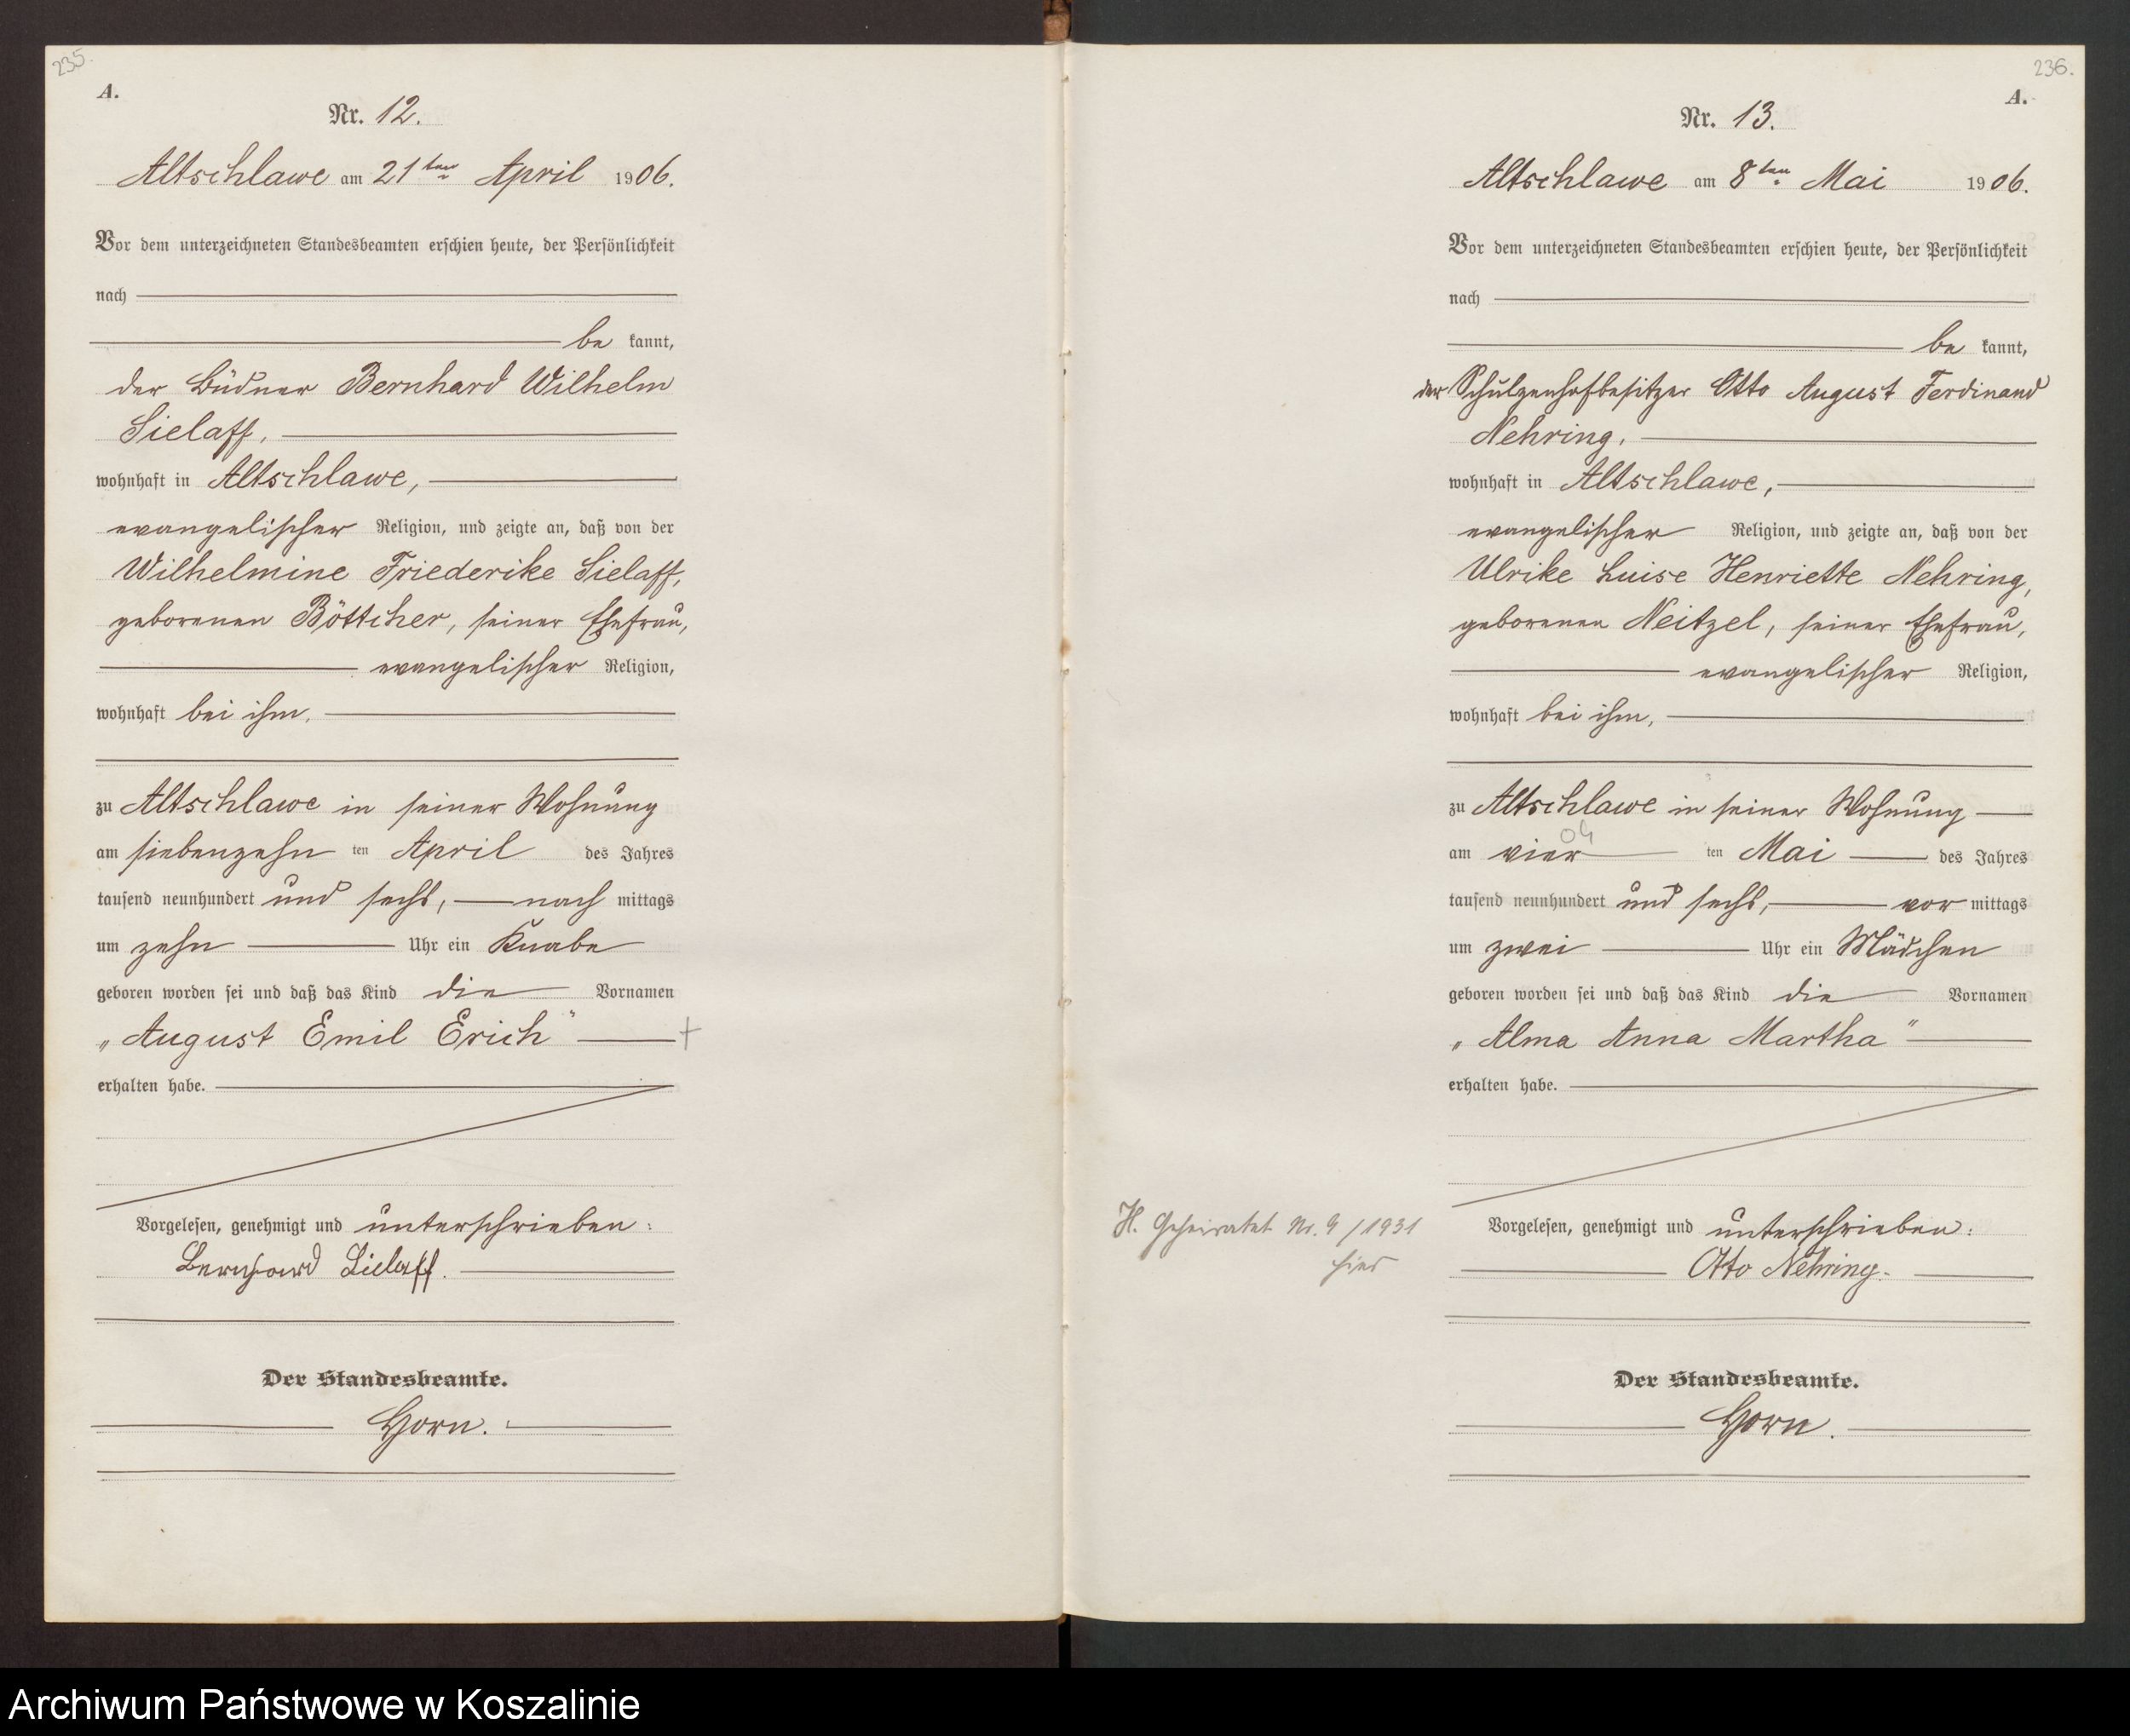 235.
A.
Nr. 12.
Altschlawe am 21ten April 1906.
Vor dem unterzeichneten Standesbeamten erschien heute, der Persönlichkeit
nach
be kannt,
der Büdner Bernhard Wilhelm
Sielaff,
wohnhaft in Altschlawe,
evangelischer Religion, und zeigte an, daß von der
Wilhelmine Friederike Sielaff,
geborenen Böttcher, seiner Ehefrau,
evangelischer Religion,
wohnhaft bei ihm,
zu Altschlawe in seiner Wohnung
am siebenzehn ten April des Jahres
tausend neunhundert und sechs, nach mittags
um zehn Uhr ein Knabe
geboren worden sei und daß das Kind die Vornamen
„August Emil Erich“ +
erhalten habe.
Vorgelesen, genehmigt und unterschrieben:
Bernhard Sielaff.
Der Standesbeamte.
Horn.
236.
A.
Nr. 13.
Altschlawe am 8ten Mai 1906.
Vor dem unterzeichneten Standesbeamten erschien heute, der Persönlichkeit
nach
be kannt,
der Schulzenhofbesitzer Otto August Ferdinand
Nehring,
wohnhaft in Altschlawe,
evangelischer Religion, und zeigte an, daß von der
Ulrike Luise Henriette Nehring,
geborenen Neitzel, seiner Ehefrau,
evangelischer Religion,
wohnhaft bei ihm,
zu Altschlawe in seiner Wohnung
am vier ten Mai des Jahres
tausend neunhundert und sechs, vor mittags
um zwei Uhr ein Mädchen
geboren worden sei und daß das Kind die Vornamen
„Alma Anna Martha“
erhalten habe.
H. Geheiratet Nr. 9/1931
hier
Vorgelesen, genehmigt und unterschrieben:
Otto Nehring.
Der Standesbeamte.
Horn.
Archiwum Państwowe w Koszalinie